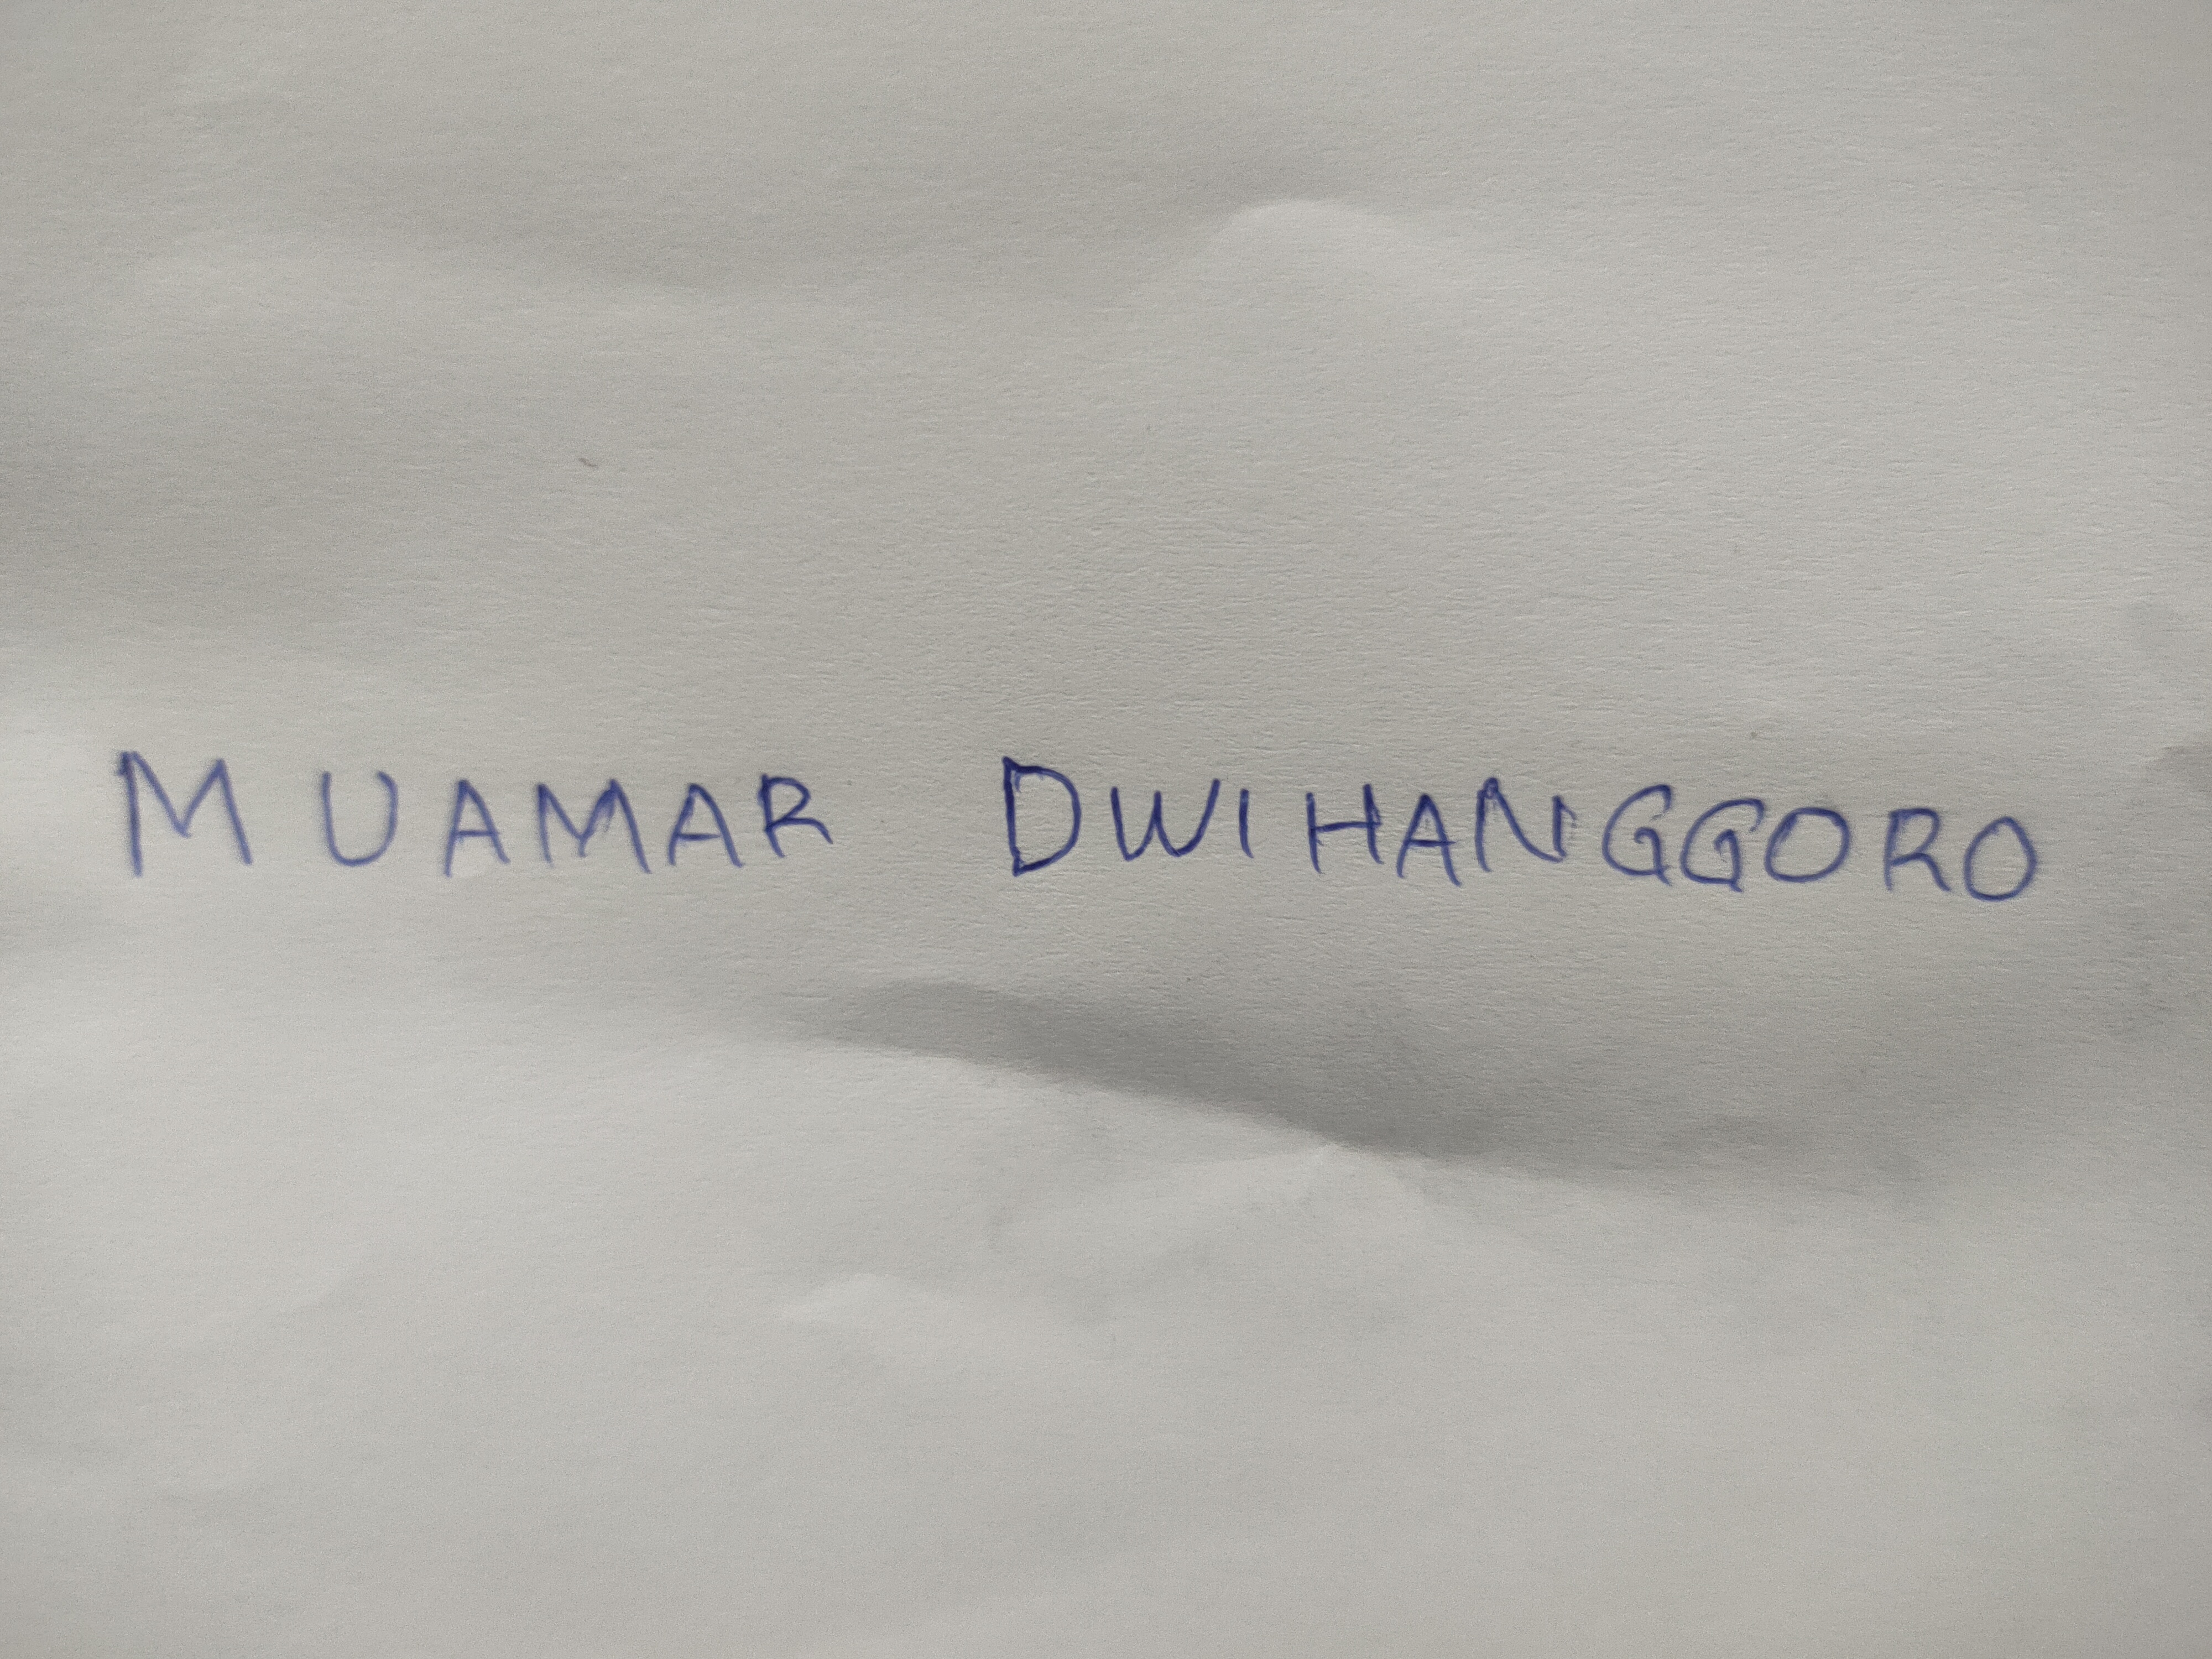 MUAMAR DWIHANGGORO